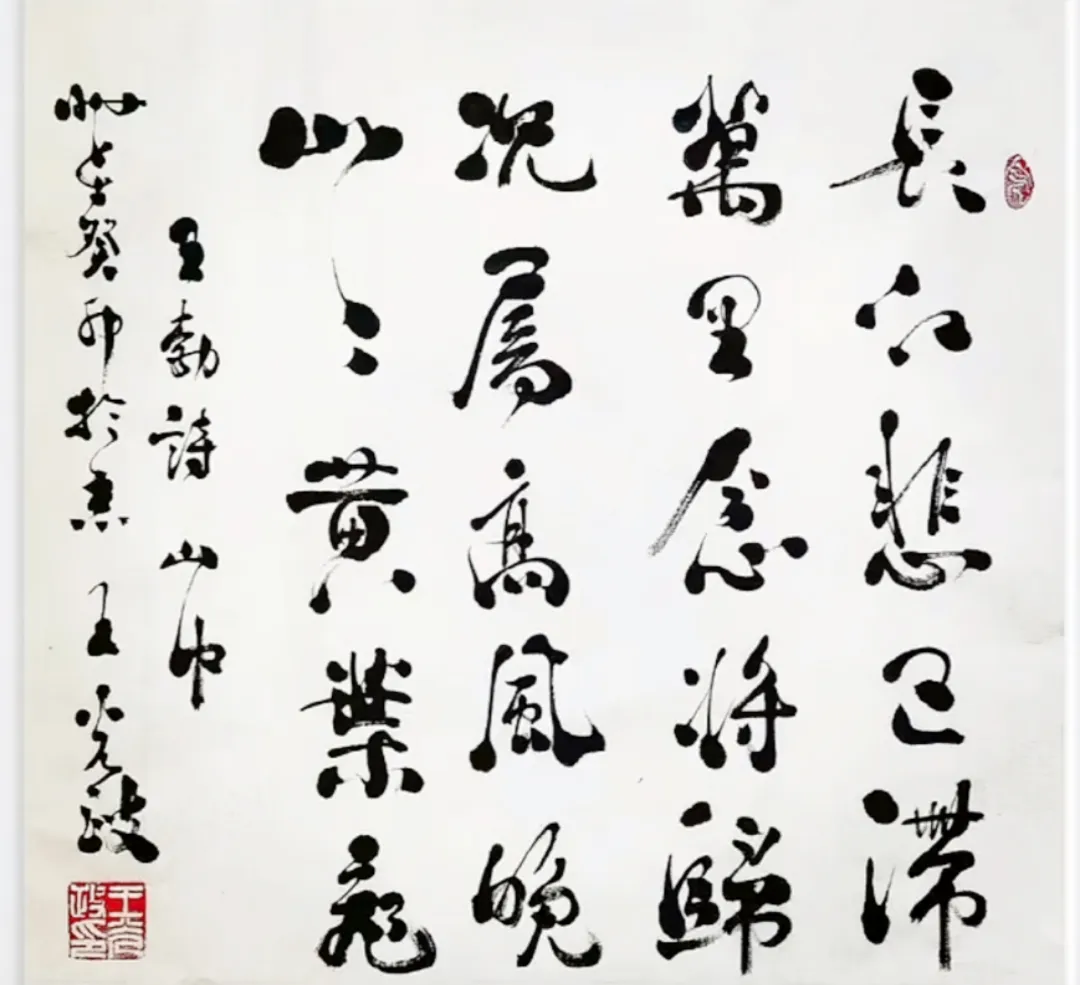 長江悲已滯
萬里念將歸
況屬高風晚
山〻黃葉飛
王勃詩 山中
癸卯於京 王光